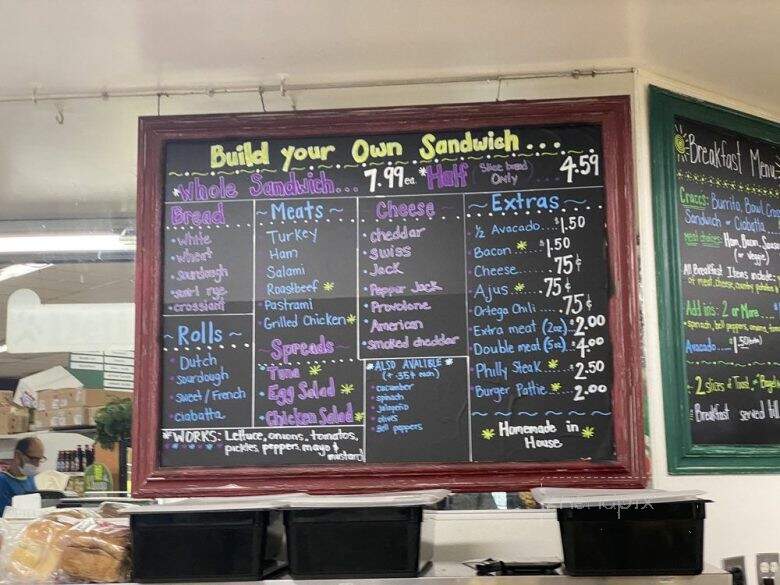 Build your Own Sandwich...
*Whole Sandwich... 7.99 ea. *Half Slice bread Only 4.59
Bread
• White
• Wheat
• sourdough
• swirl rye
• crossiant
~ Rolls ~
• Dutch
• sourdough
• sweet / French
• ciabatta
~ Meats ~
• Turkey
• Ham
• Salami
• Roastbeef *
• Pastrami
• Grilled Chicken *
Spreads
• Tuna *
• Egg Salad *
• Chicken Salad *
Cheese
• cheddar
• swiss
• Jack
• Pepper Jack
• Provolone
• American
• smoked cheddar
*ALSO AVALIBLE*
(+.35¢ each)
• cucumber
• spinach
• jalapeño
• olives
• Bell peppers
~ Extras ~
• ½ Avocado... $1.50
• Bacon *... $1.50
• Cheese... .75¢
• Ajus *... .75¢
• Ortega Chili... .75¢
• Extra meat (2oz).. $2.00
• Double meat (5oz).. $4.00
• Philly Steak *.. $2.50
• Burger Pattie *.. 2.00
* Homemade in *
House
*WORKS: Lettuce, onions, tomatos,
pickles, peppers, mayo &
mustard
Breakfast Menu
Burrito, Bowl,
Sandwich or Ciabatta
meat choices: Ham, Bacon,
(or veggie)
All Breakfast Items include
of meat, cheese, country potatoes
Add ins: 2 or More...
• spinach, bell peppers, onions,
Avocado..... $1.50
~ 2 slices of Toast,
Breakfast served